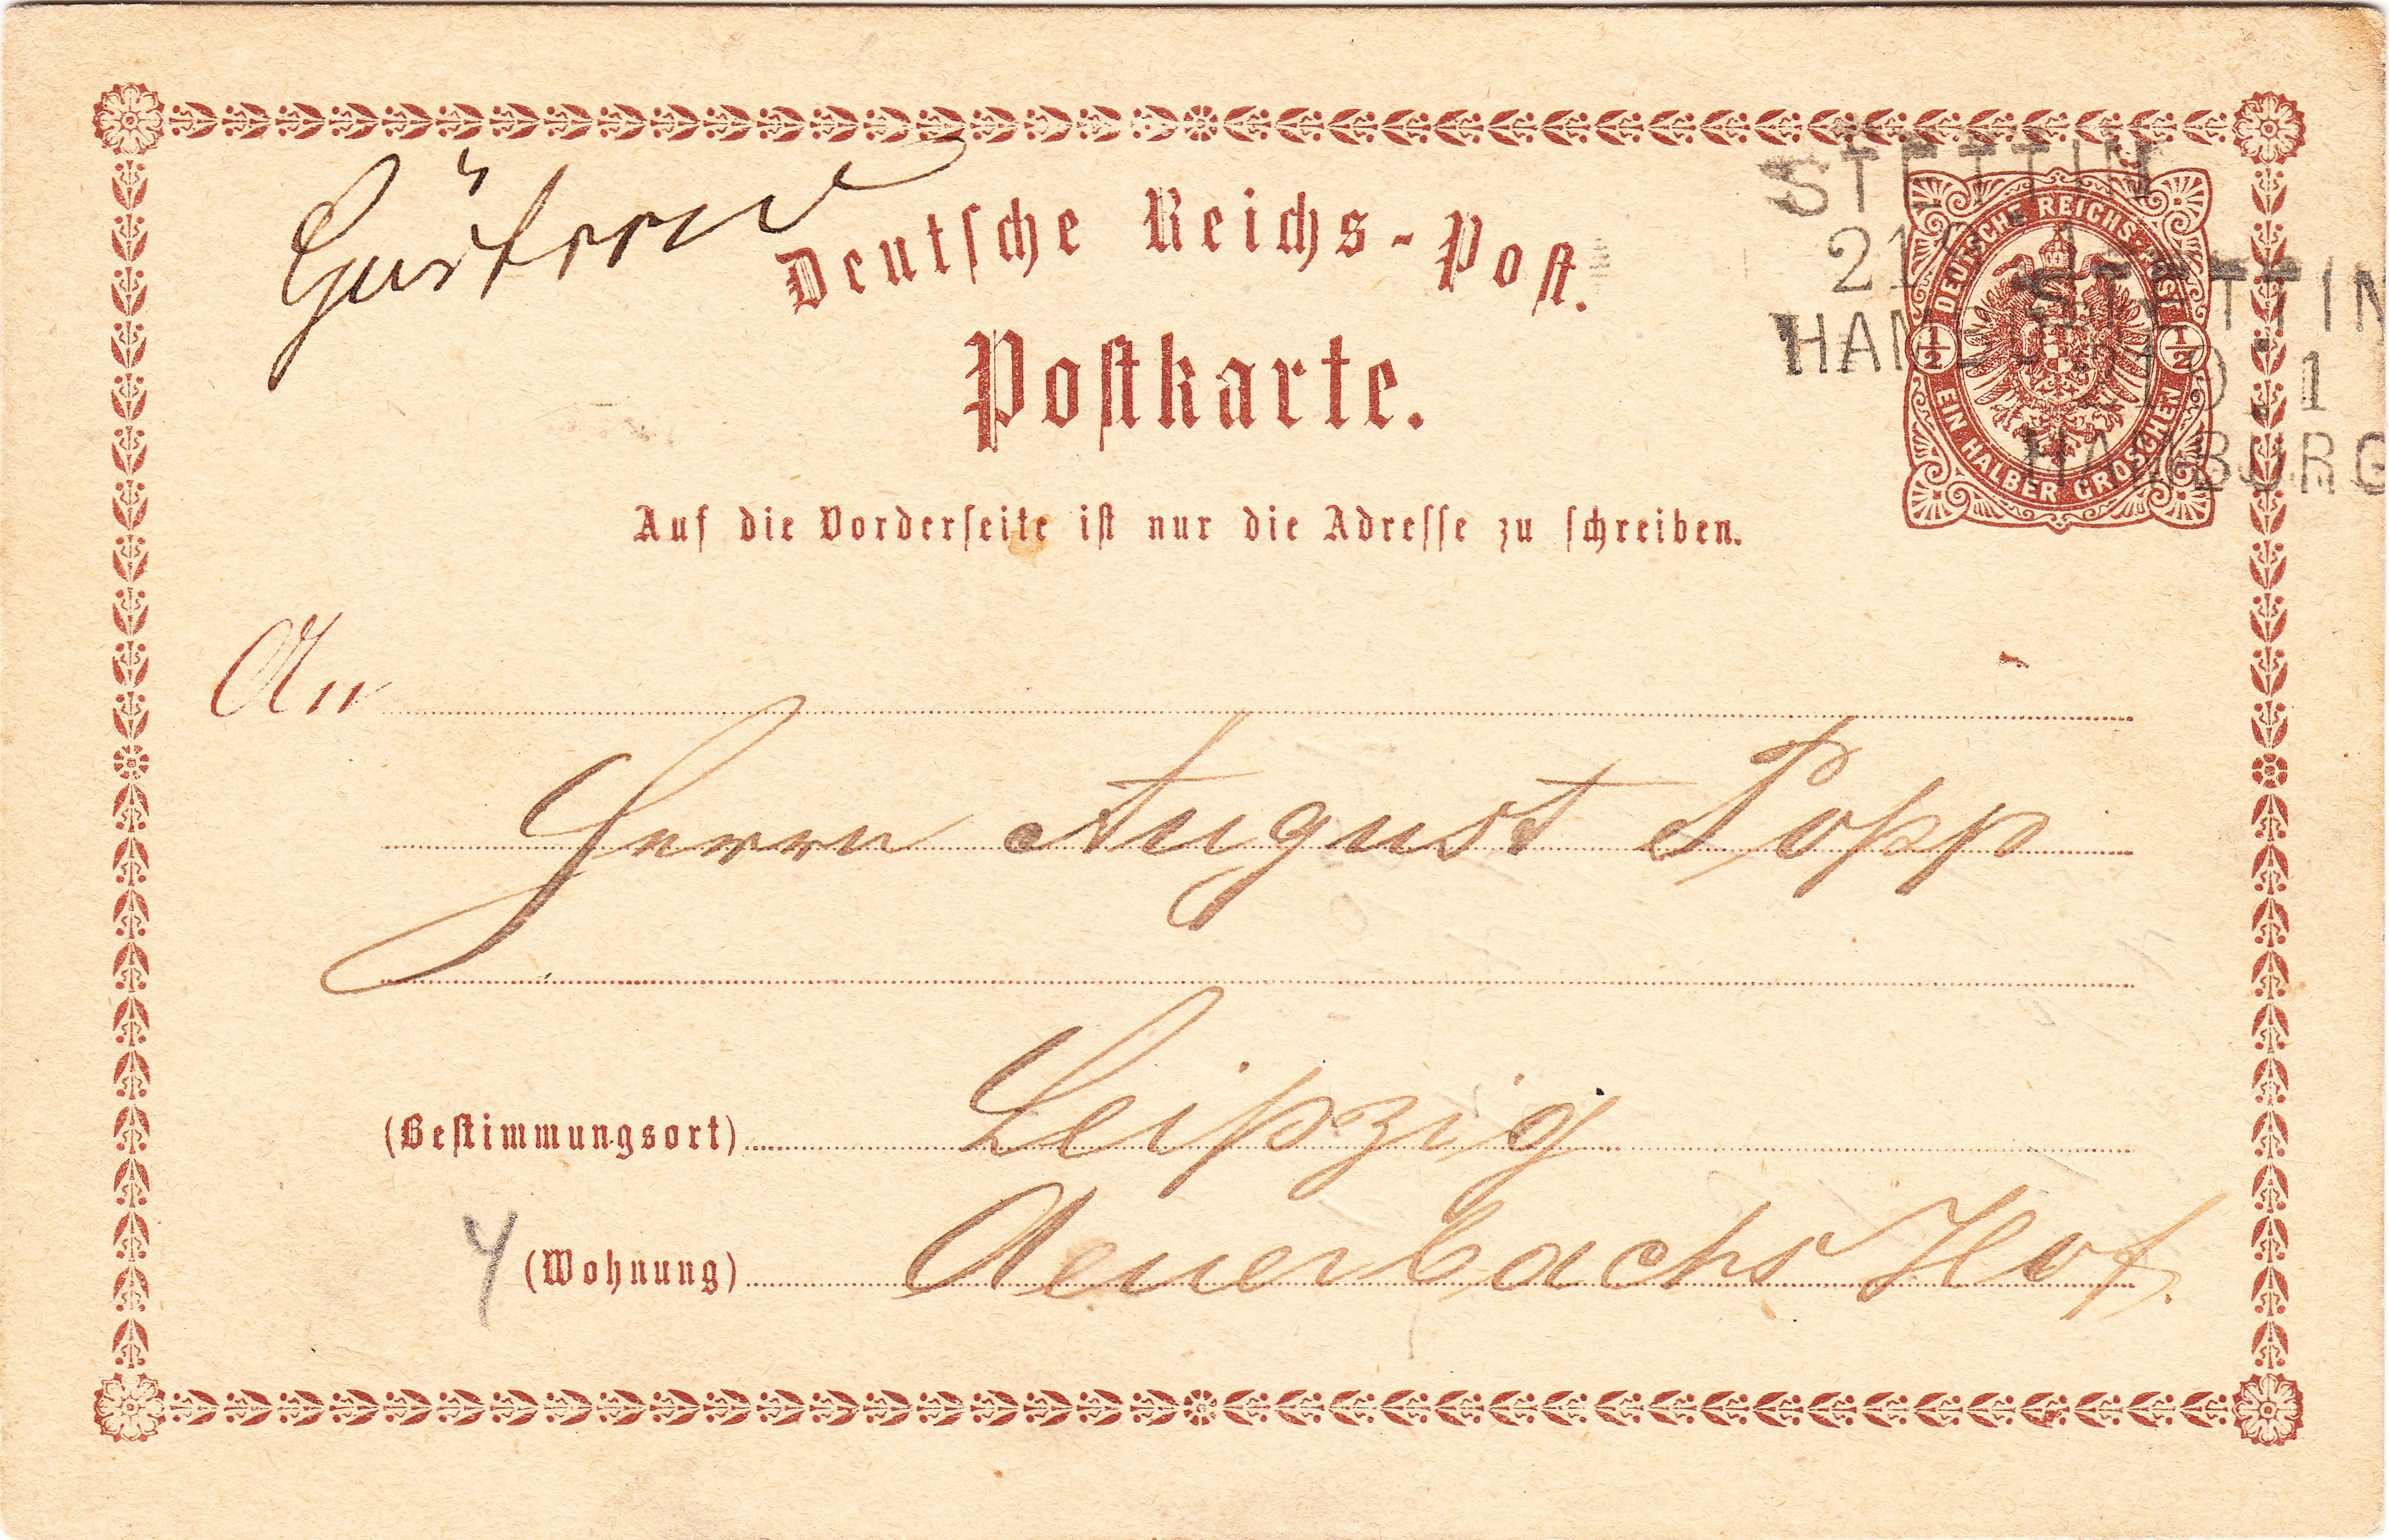 Güstrow
Deutsche Reichs-Post.
Postkarte.
STETTIN
219 1
HAMBURG
STETTIN
219 1
HAMBURG
DEUTSCHE REICHS-POST
1/2 1/2
EIN HALBER GROSCHEN
Auf die Vorderseite ist nur die Adresse zu schreiben.
An
Herrn August Popp
(Bestimmungsort) Leipzig
(Wohnung) Auerbachs Hof.